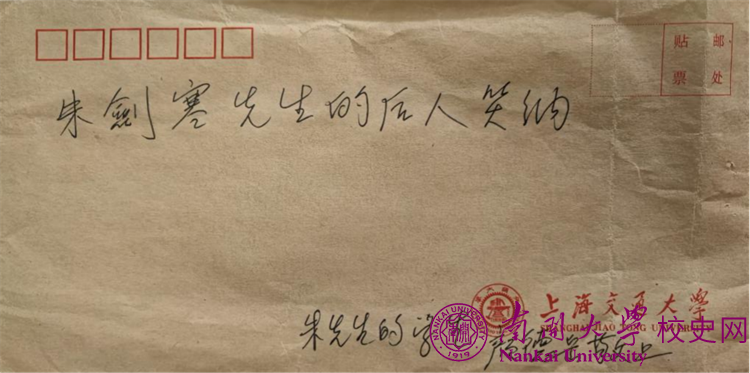 贴 邮
票 处
朱劍寒先生的后人笑纳
上海交通大学
SHANGHAI JIAO TONG UNIVERSITY
朱先生的学
NANKAI UNIVERSITY
1919
南開大學校史网
Nankai University